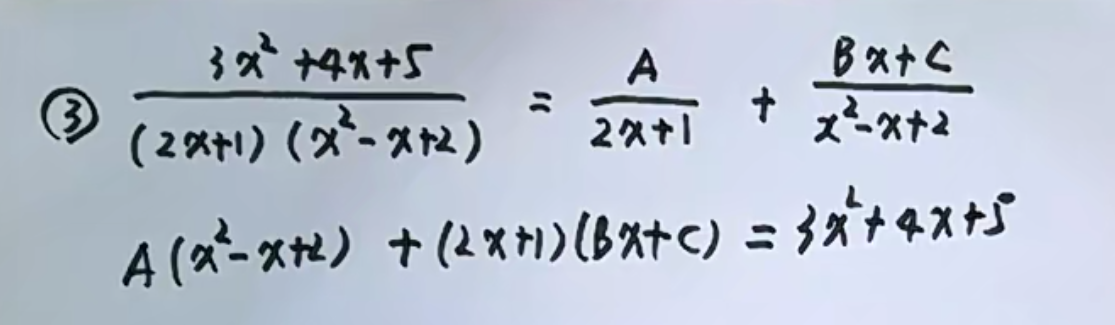 ③ (3x²+4x+5)/((2x+1)(x²-x+2)) = A/(2x+1) + (Bx+C)/(x²-x+2)
A(x²-x+2) + (2x+1)(Bx+C) = 3x²+4x+5